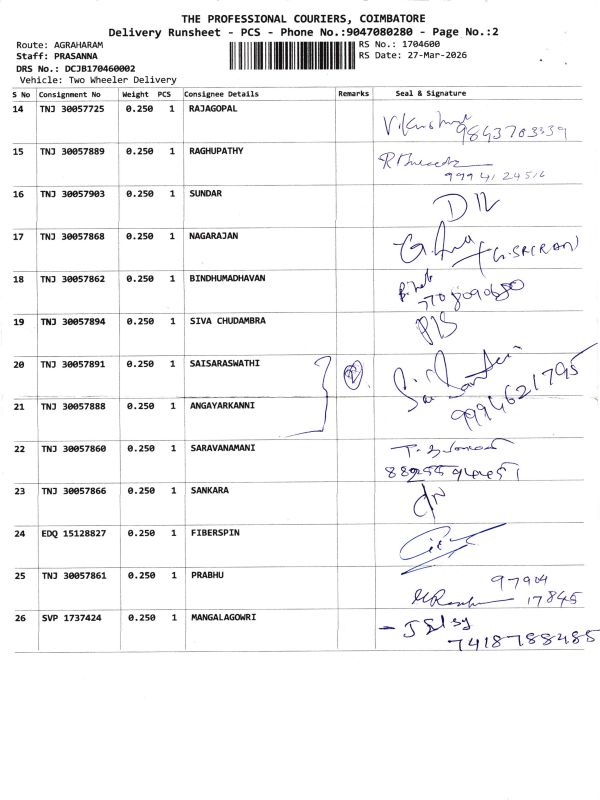 THE PROFESSIONAL COURIERS, COIMBATORE
Delivery Runsheet - PCS - Phone No.:9047080280 - Page No.:2
Route: AGRAHARAM RS No.: 1704600
Staff: PRASANNA RS Date: 27-Mar-2026
DRS No.: DCJB170460002
Vehicle: Two Wheeler Delivery
S No Consignment No Weight PCS Consignee Details Remarks Seal & Signature
14 TNJ 30057725 0.250 1 RAJAGOPAL
9843703339
15 TNJ 30057889 0.250 1 RAGHUPATHY
9994124516
16 TNJ 30057903 0.250 1 SUNDAR
17 TNJ 30057868 0.250 1 NAGARAJAN
(G.SRIRAM)
18 TNJ 30057862 0.250 1 BINDHUMADHAVAN
7708090680
19 TNJ 30057894 0.250 1 SIVA CHUDAMBRA
20 TNJ 30057891 0.250 1 SAISARASWATHI
21 TNJ 30057888 0.250 1 ANGAYARKANNI
9994621795
22 TNJ 30057860 0.250 1 SARAVANAMANI
23 TNJ 30057866 0.250 1 SANKARA
24 EDQ 15128827 0.250 1 FIBERSPIN
25 TNJ 30057861 0.250 1 PRABHU
97904
17845
26 SVP 1737424 0.250 1 MANGALAGOWRI
7418788485